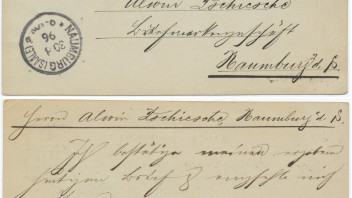 NAUMBURG (SAALE)
20 4
96
Alwin Zschiesche
Briefmarkengeschäft
Naumburg a. S.
Herrn Alwin Zschiesche, Naumburg a. S.
Ich bestätige meinen ergeben
heutigen Brief & empfehle noch